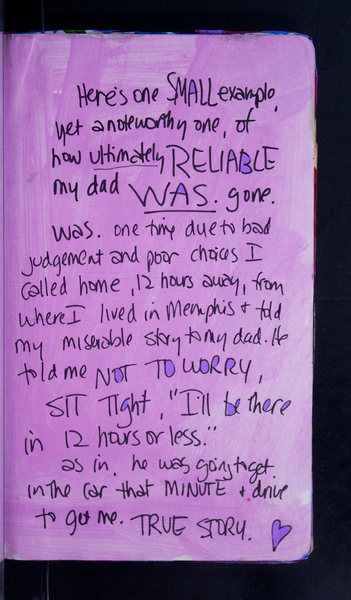 Here's one SMALL example,
yet a noteworthy one, of
how ultimately RELIABLE
my dad WAS. gone.
was. one time due to bad
judgement and poor choices I
called home, 12 hours away, from
where I lived in Memphis + told
my miserable story to my dad. He
told me NOT TO WORRY,
SIT TIGHT, "I'll be there
in 12 hours or less."
as in, he was going to get
in the car that MINUTE + drive
to get me. TRUE STORY.